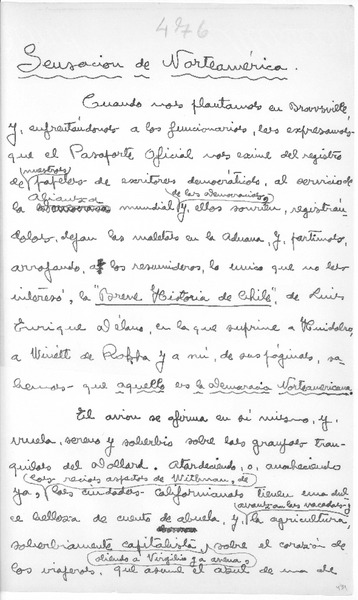 476
Sensacion de Norteamérica.
Cuando nos plantamos en Brownsville
y, enfrentándonos a los funcionarios, les expresamos
que el Pasaporte Oficial nos exime del registro
nuestros
de papeles de escritores democráticos, al servicio de
Alianza de las democracias,
la mundial y, ellos sonrien, registran
dolos, dejan las maletas en la Aduana, y, partimos,
arrojando, a los resumideros, lo unico que no les
interesó, la "Breve Historia de Chile", de Luis
Enrique Délano, en la que suprime a Huidobro,
a Winétt de Rokha y a mi, de sus páginas, sa-
bemos que aquello es la democracia Norteamericana.
El avion se afirma en si mismo, y
vuela, sereno y soberbio sobre los granjos tran-
quilos del Dollard. Atardeciendo, o, anocheciendo
los recios aspectos de Withman, de
ya, las ciudades californianas tienen una dul
avanzan las vacadas y
ce belleza de cuento de abuela, y, la agricultura,
soberbiamente capitalista, sobre el corazón de
oliendo a Virgilio y a avena,
los viajeros, que asume el azul de una de